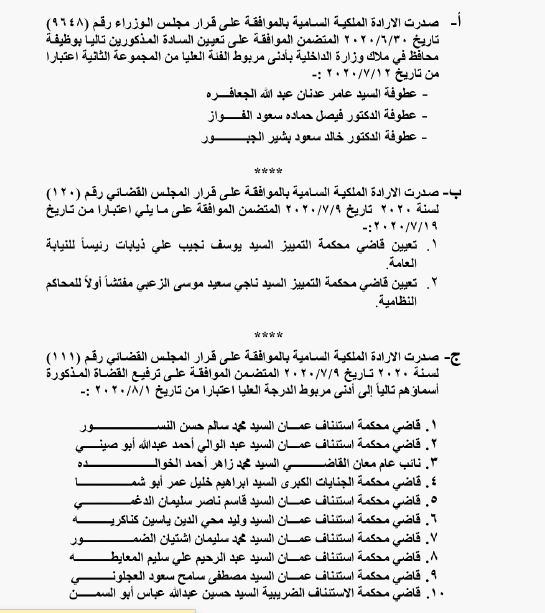 أ- صدرت الارادة الملكية السامية بالموافقة على قرار مجلس الوزراء رقم (٩٦٤٨)
تاريخ ٢٠٢٠/٦/٣٠ المتضمن الموافقة على تعيين السادة المذكورين تاليا بوظيفة
محافظ في ملاك وزارة الداخلية بأدنى مربوط الفئة العليا من المجموعة الثانية اعتبارا
من تاريخ ٢٠٢٠/٧/١٢ :-
- عطوفة السيد عامر عدنان عبد الله الجعافـــره
- عطوفة الدكتور فيصل حماده سعود الفـــــواز
- عطوفة الدكتور خالد سعود بشير الجبـــــــور
****
ب- صدرت الارادة الملكية السامية بالموافقة على قرار المجلس القضائي رقم (١٢٠)
لسنة ٢٠٢٠ تاريخ ٢٠٢٠/٧/٩ المتضمن الموافقة على ما يلي اعتبارا من تاريخ
٢٠٢٠/٧/١٩:-
١. تعيين قاضي محكمة التمييز السيد يوسف نجيب علي ذيابات رئيساً للنيابة
العامة.
٢. تعيين قاضي محكمة التمييز السيد ناجي سعيد موسى الزعبي مفتشاً أولاً للمحاكم
النظامية.
****
ج- صدرت الارادة الملكية السامية بالموافقة على قرار المجلس القضائي رقم (١١١)
لسنة ٢٠٢٠ تاريخ ٢٠٢٠/٧/٩ المتضمن الموافقة على ترفيع القضاة المذكورة
أسماؤهم تالياً إلى أدنى مربوط الدرجة العليا اعتبارا من تاريخ ٢٠٢٠/٨/١ :-
١. قاضي محكمة استئناف عمــان السيد محمد سالم حسن النســـــــــــور
٢. قاضي محكمة استئناف عمــان السيد عبد الوالي أحمد عبدالله أبو صينـــي
٣. نائب عام معان القاضــــــــي السيد محمد زاهر أحمد الخوالــــــــــده
٤. قاضي محكمة الجنايات الكبرى السيد ابراهيم خليل عمر أبو شمـــــــــا
٥. قاضي محكمة استئناف عمــان السيد قاسم ناصر سليمان الدغمـــــــــي
٦. قاضي محكمة استئناف عمــان السيد وليد محي الدين ياسين كناكريــــــه
٧. قاضي محكمة استئناف عمــان السيد محمد سليمان اشتيان الضمــــــــور
٨. قاضي محكمة استئناف عمــان السيد عبد الرحيم علي سليم المعايطـــــــه
٩. قاضي محكمة استئناف عمــان السيد مصطفى سامح سعود العجلونــــــي
١٠. قاضي محكمة الاستئناف الضريبية السيد حسين عبدالله عباس أبو السمــــن